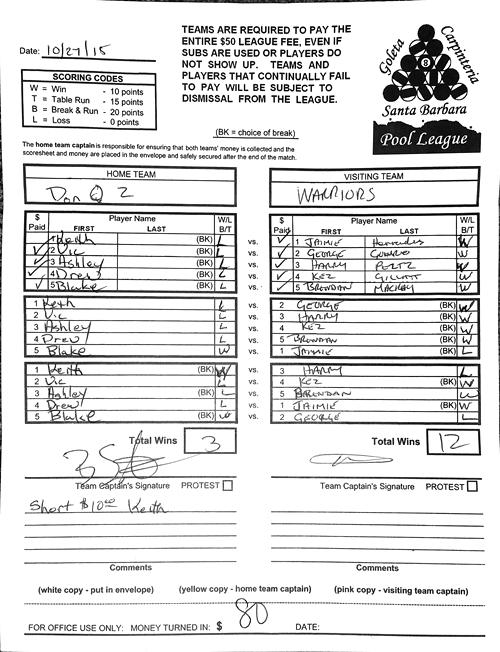 Date: 10/27/15
SCORING CODES
W = Win - 10 points
T = Table Run - 15 points
B = Break & Run - 20 points
L = Loss - 0 points
TEAMS ARE REQUIRED TO PAY THE
ENTIRE $50 LEAGUE FEE, EVEN IF
SUBS ARE USED OR PLAYERS DO
NOT SHOW UP. TEAMS AND
PLAYERS THAT CONTINUALLY FAIL
TO PAY WILL BE SUBJECT TO
DISMISSAL FROM THE LEAGUE.
(BK = choice of break)
Goleta
Carpinteria
8
Santa Barbara
Pool League
The home team captain is responsible for ensuring that both teams' money is collected and the
scoresheet and money are placed in the envelope and safely secured after the end of the match.
HOME TEAM VISITING TEAM
Don Q 2 WARRIORS
$ Paid Player Name FIRST LAST W/L B/T $ Paid Player Name FIRST LAST W/L B/T
1 Keith (BK) L vs. ✓ 1 JAIMIE W
✓ 2 Vic (BK) L vs. ✓ 2 GEORGE W
✓ 3 Ashley (BK) L vs. ✓ 3 HARRY W
✓ 4 Drew (BK) L vs. ✓ 4 KEZ W
✓ 5 Blake (BK) L vs. ✓ 5 BRENDAN MACKEY W
1 Keith L vs. 2 GEORGE (BK) W
2 Vic L vs. 3 HARRY (BK) W
3 Ashley L vs. 4 KEZ (BK) W
4 Drew L vs. 5 BRENDAN (BK) W
5 Blake W vs. 1 JAIMIE (BK) L
1 Keith (BK) W vs. 3 HARRY L
2 Vic L vs. 4 KEZ (BK) W
3 Ashley (BK) L vs. 5 BRENDAN W
4 Drew L vs. 1 JAIMIE (BK) W
5 Blake (BK) W vs. 2 GEORGE L
Total Wins 3 Total Wins 12
Team Captain's Signature PROTEST Team Captain's Signature PROTEST
Short $10.00 Keith
Comments Comments
(white copy - put in envelope) (yellow copy - home team captain) (pink copy - visiting team captain)
FOR OFFICE USE ONLY: MONEY TURNED IN: $ 80 DATE: